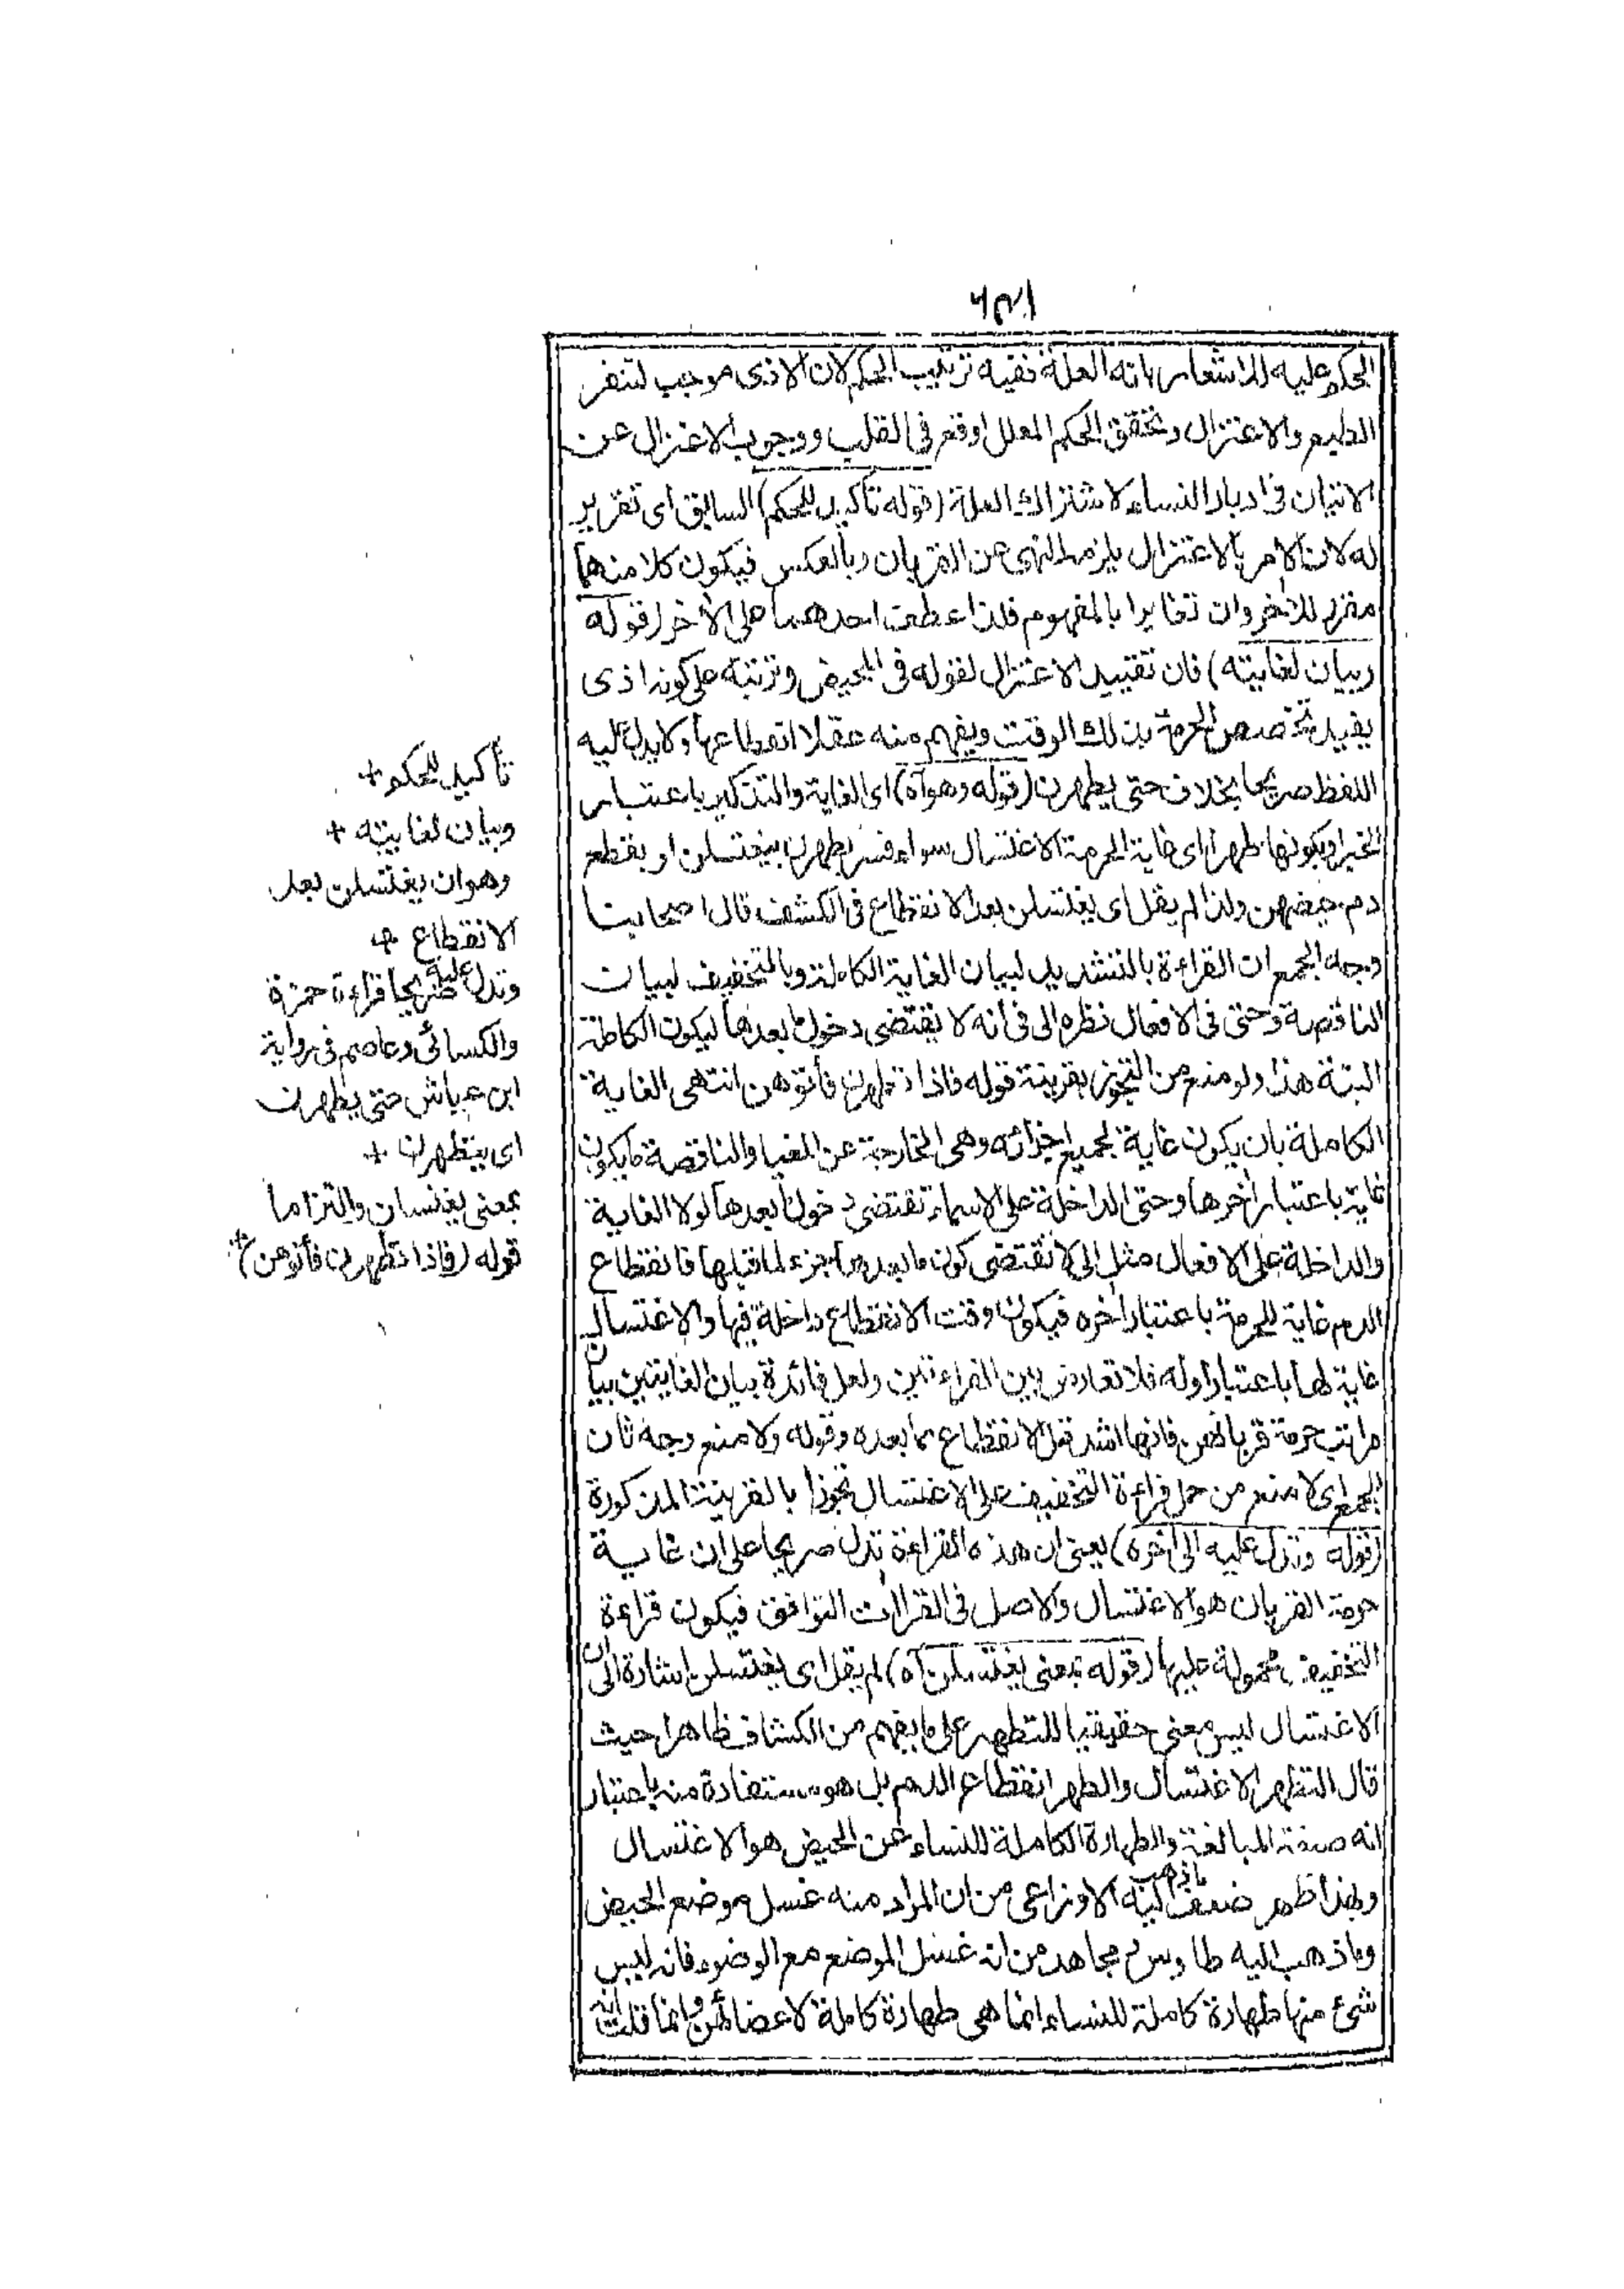 الحكم عليه للاشعار بانه العلة ففيه ترتيب الحكم لان الاذى موجب لتنفر
الطبع والاعتزال وتحقق الحكم المعلل اوقع فى القلب ووجوب الاعتزال عن
الاتيان فى ادبار النساء لاشتراك العلة (قوله تأكيد للحكم) السابق اى تقرير
له لان الامر بالاعتزال يلزمه النهى عن القربان وبالعكس فيكون كلا منهما
مقررا للاخر وان تغايرا بالمفهوم فلذا عطف احدهما على الاخر (قوله
وبيان لغايته) فان تقييد الاعتزال لقوله فى المحيض وترتبه على كونه اذى
يفيد تخصيص الحرمة بذلك الوقت ويفهم منه عقلا انقطاعها ولا يدل عليه
اللفظ صريحا بخلاف حتى يطهرن (قوله وهو آه) اى الغاية والتذكير باعتبار
الخبر اى غاية الحرمة الاغتسال سواء فسر يطهرن بيغتسلن او ينقطع
دم حيضهن ولذا لم يقل اى يغتسلن بعد الانقطاع فى الكشف قال اصحابنا
وجه الجمع ان القراءة بالتشديد لبيان الغاية الكاملة وبالتخفيف لبيان
الناقصة وحتى فى الافعال نظيره الى فى أنه لا يقتضى دخول ما بعدها ليكون الكاملة
البتة هذا ولو منع من التجوز بقرينة قوله فاذا تطهرن فأتوهن انتهى الغاية
الكاملة بان يكون غاية لجميع اجزائه وهى الخارجة عن المغيا والناقصة ما يكون
غاية باعتبار اخرها وحتى الداخلة على الاسماء تقتضى دخول ما بعدها لولا الغاية
والداخلة على الافعال مثل الى لا تقتضى كون ما بعدها جزء لما قبلها فانقطاع
الدم غاية للحرمة باعتبار اخره فيكون وقت الانقطاع داخلة فيها والاغتسال
غاية لها باعتبار اوله فلا تعارض بين القراءتين ولعل فائدة بيان الغايتين بيان
مراتب حرمة قربانهن فانها اشد قبل الانقطاع مما بعده وقوله ولا منع وجه ثان
للجمع اى لا منع من حمل قراءة التخفيف على الاغتسال تجوزا بالقرينة المذكورة
(قوله وتدل عليه الى آخره) يعنى ان هذه القراءة تدل صريحا على ان غاية
حرمة القربان هو الاغتسال والاصل فى القراآت التوافق فيكون قراءة
التخفيف محمولة عليها (قوله بمعنى يغتسلن آه) لم يقل اى يغتسلن اشارة الى ان
الاغتسال ليس معنى حقيقيا للتطهر على ما يفهم من الكشاف ظاهرا حيث
قال التطهر الاغتسال والطهر انقطاع الدم بل هو مستفادة منه باعتبار
انه صيغة المبالغة والطهارة الكاملة للنساء عن الحيض هو الاغتسال
وبهذا ظهر ضعف ما ذهب اليه الاوزاعى من ان المراد منه غسل موضع الحيض
وما ذهب اليه طاوس ومجاهد من انه غسل الموضع مع الوضوء فانه ليس
شئ منها طهارة كاملة للنساء انما هى طهارة كاملة لاعضائهن وانما قلت انه
تأكيد للحكم +
وبيان لغايته +
وهو ان يغتسلن بعد
الانقطاع +
وتدل عليه صريحا قراءة حمزة
والكسائى وعاصم فى رواية
ابن عياش حتى يطهرن
اى يتطهرن +
بمعنى يغتسلن والتزاما
قوله (فاذا تطهرن فأتوهن) +